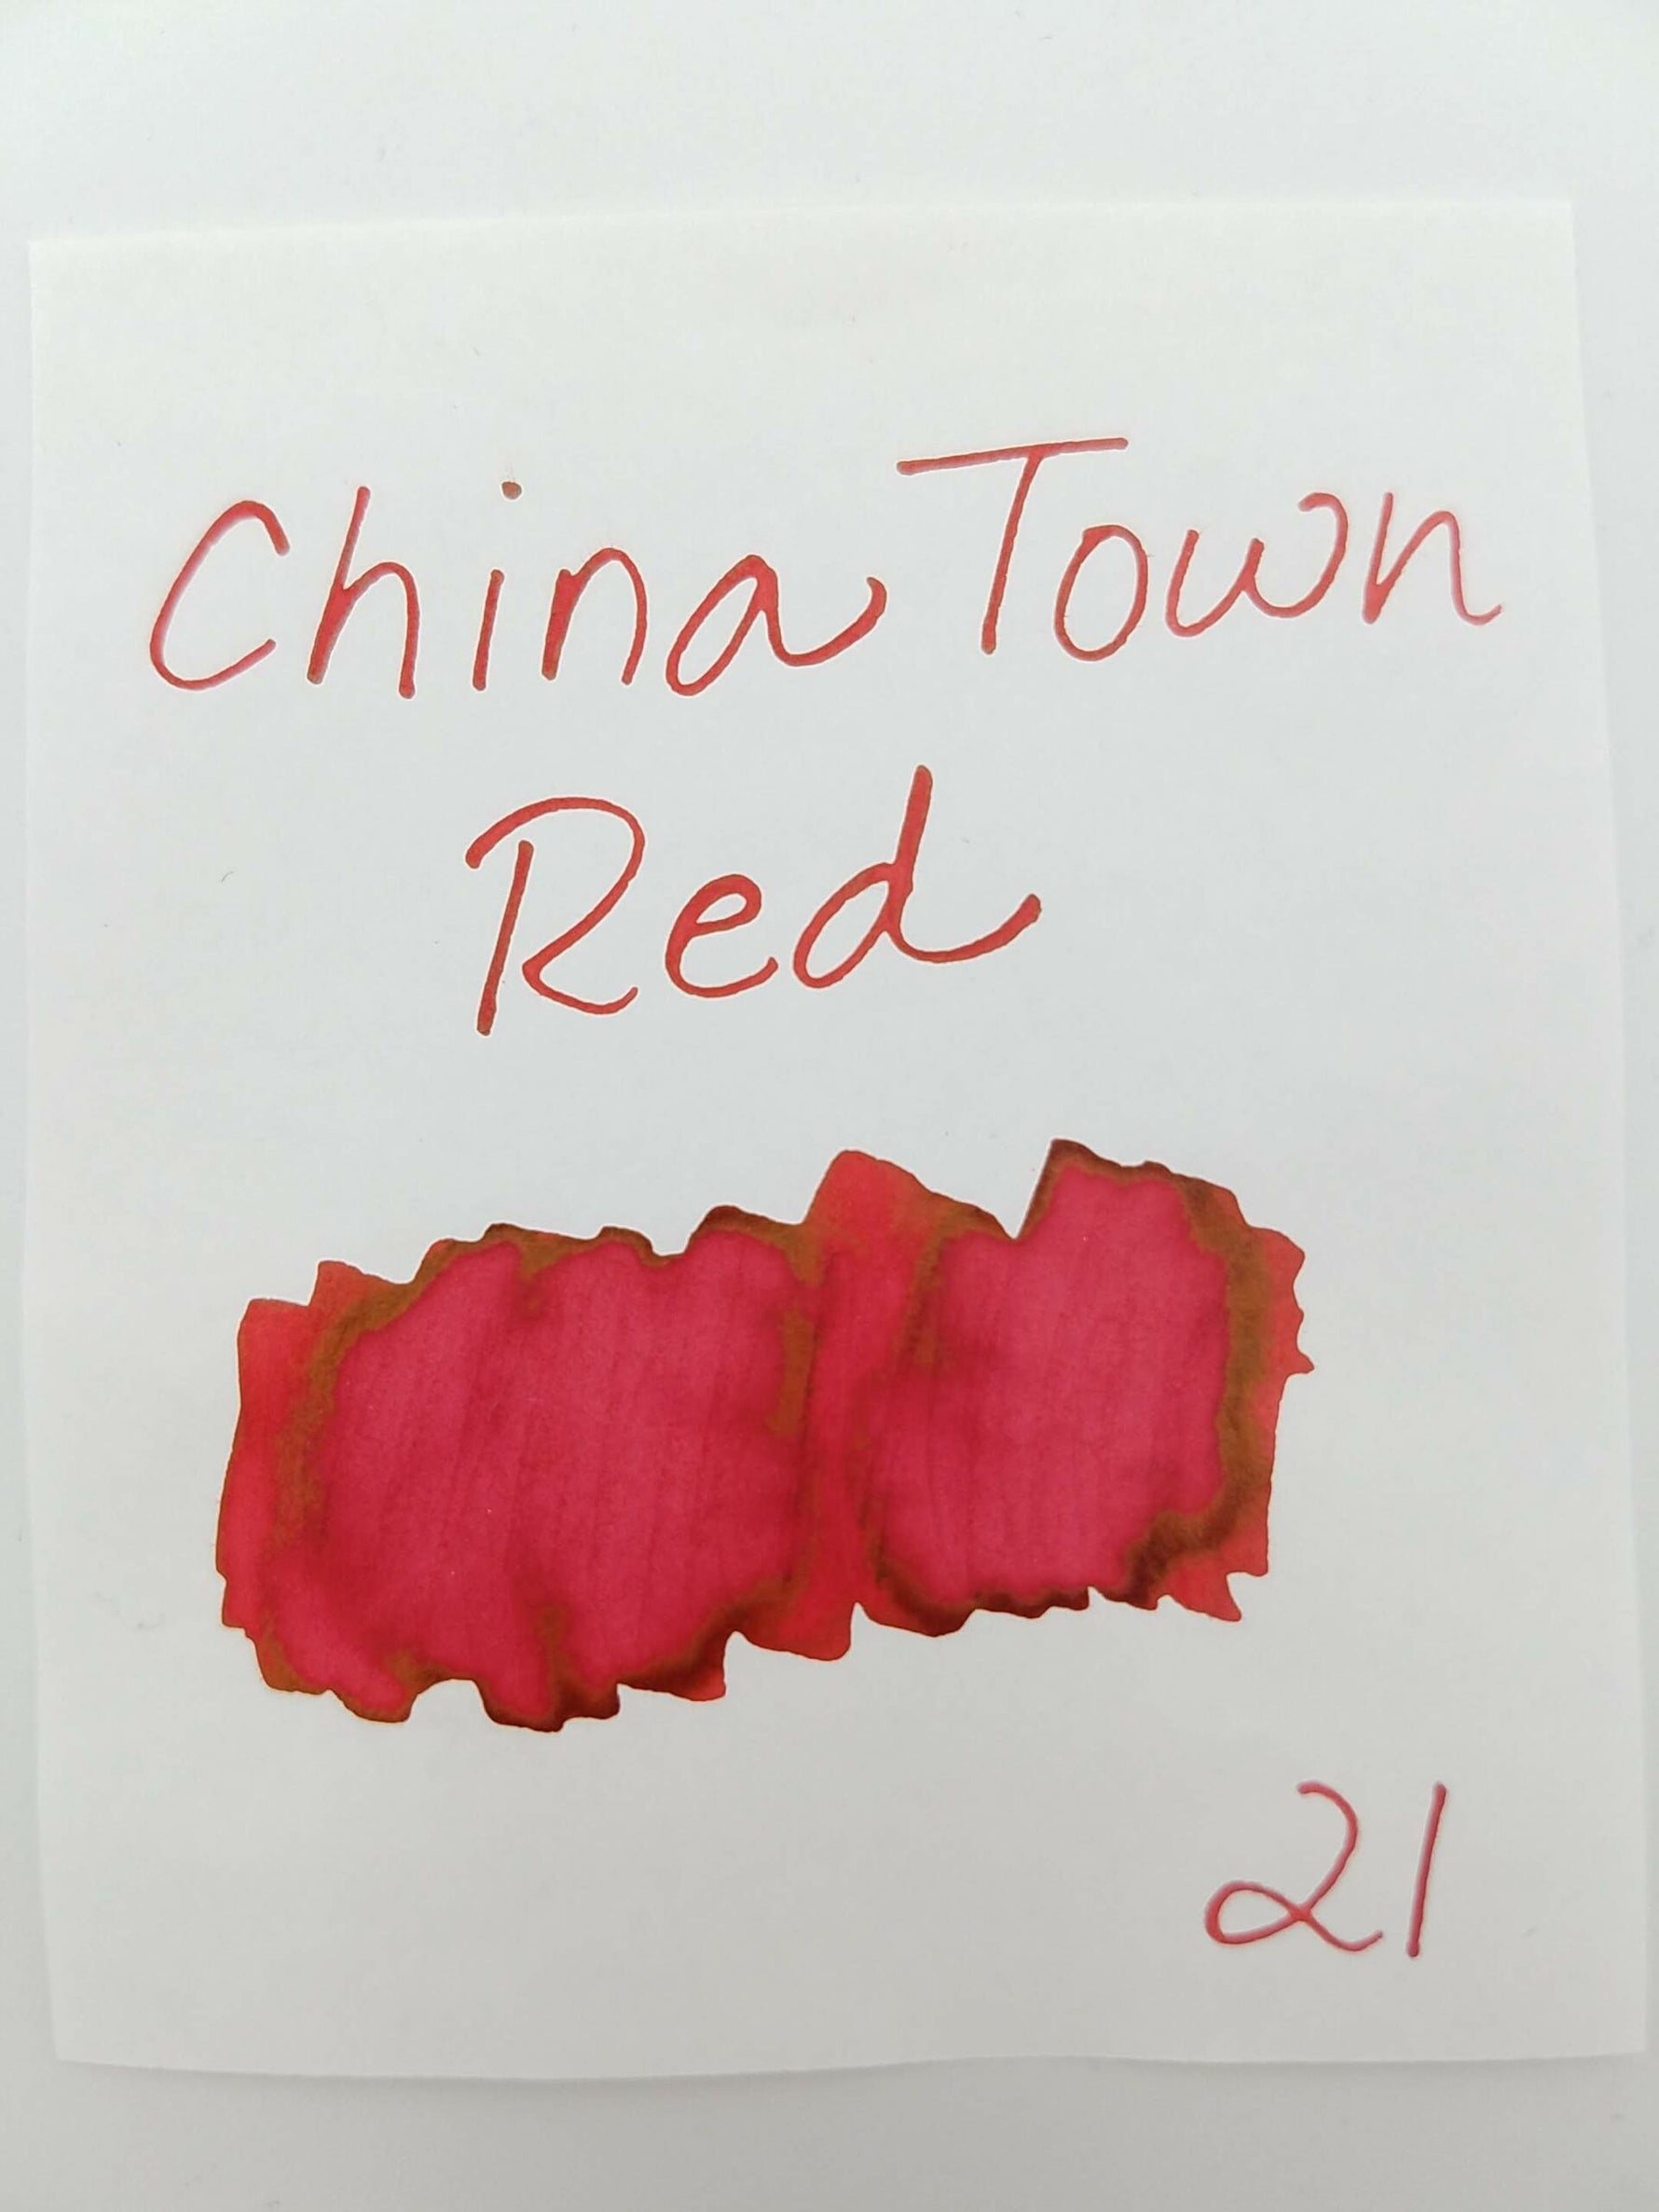 China Town
Red
21